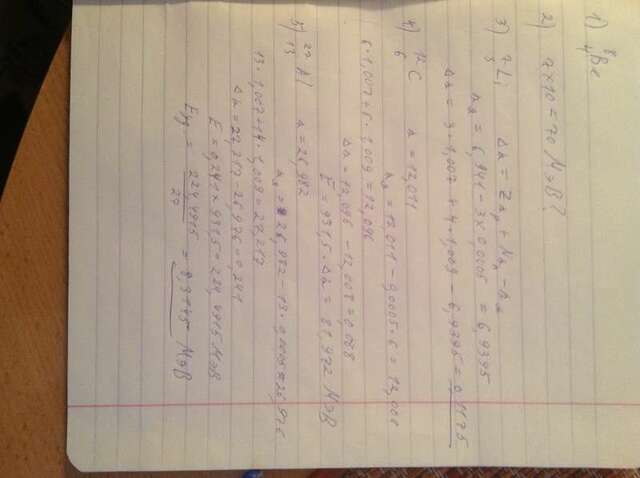 1) ⁸₄Be
2) 7×10 = 70 МэВ?
3) ⁷₃Li Δm = Zmp + Nmn - mя
mя = 6,941 - 3×0,0005 = 6,9395
Δm = 3·1,007 + 4·1,009 - 6,9395 = 0,1175
4) ¹²₆C m = 12,011
mя = 12,011 - 0,0005·6 = 12,008
6·1,007 + 6·1,009 = 12,096
Δm = 12,096 - 12,008 = 0,088
E = 931,5·Δm = 81,972 МэВ
5) ²⁷₁₃Al m = 26,982
mя = 26,982 - 13·0,0005 = 26,976
13·1,007 + 14·1,009 = 27,217
Δm = 27,217 - 26,976 = 0,241
E = 0,241×931,5 = 224,4915 МэВ
Eуд = 224,4915 / 27 = 8,3145 МэВ